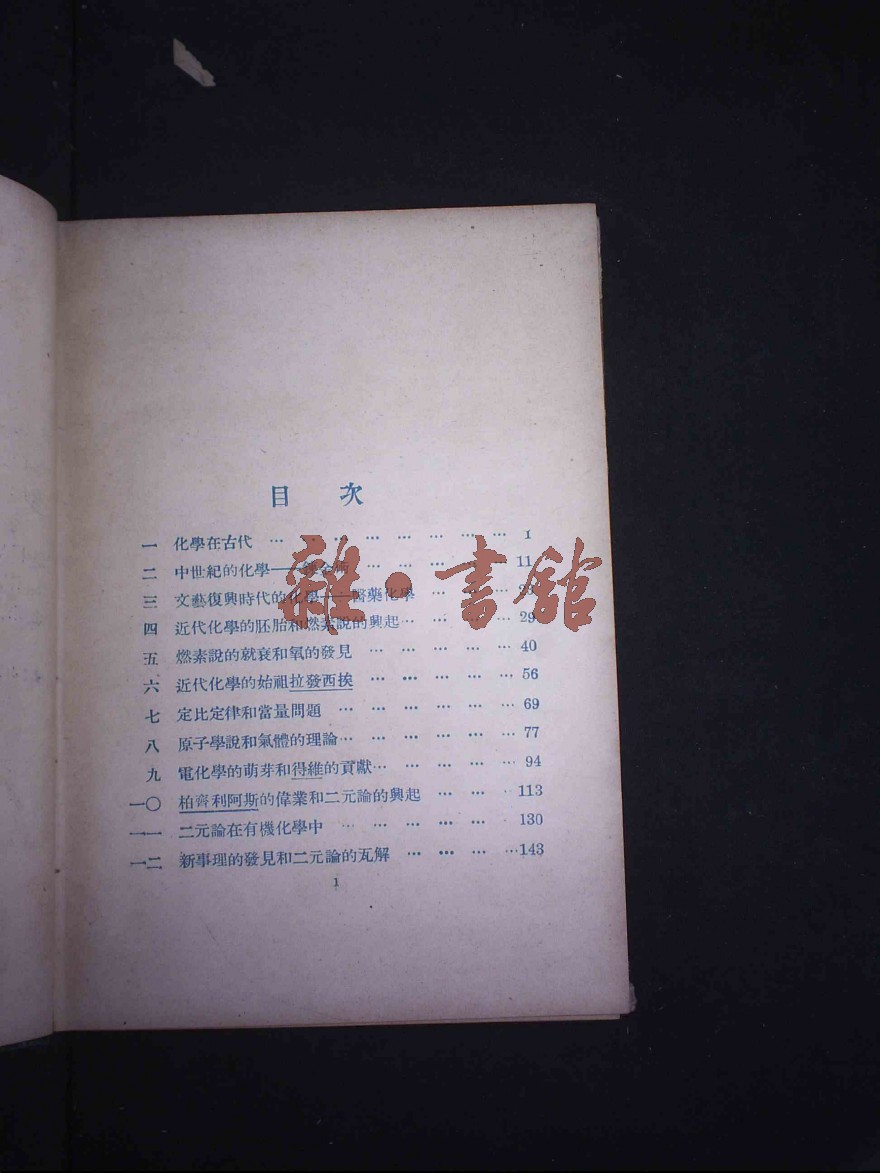 目 次
一 化學在古代 … … … … … … … … 1
二 中世紀的化學——鍊金術 … … … … … 11
三 文藝復興時代的化學——醫藥化學 … … … 23
四 近代化學的胚胎和燃素說的興起… … … … 29
五 燃素說的就衰和氧的發見 … … … … … 40
六 近代化學的始祖拉發西挨 … … … … … 56
七 定比定律和當量問題 … … … … … … 69
八 原子學說和氣體的理論… … … … … … 77
九 電化學的萌芽和得維的貢獻… … … … … 94
一〇 柏齊利阿斯的偉業和二元論的興起 … … … 113
一一 二元論在有機化學中 … … … … … 130
一二 新事理的發見和二元論的瓦解 … … … …143
1
雜·書館